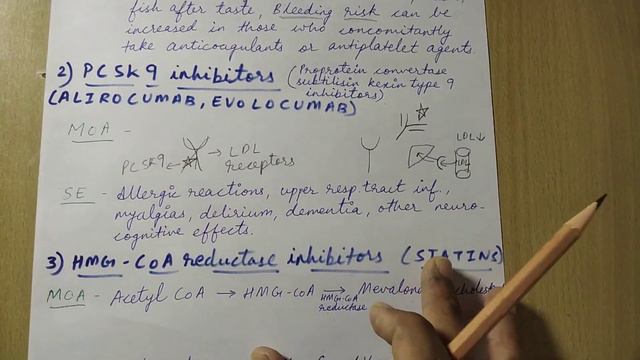 fish after taste, Bleeding risk can be
increased in those who concomitantly
take anticoagulants or antiplatelet agents.
2) PCSK9 inhibitors (Proprotein convertase
subtilisin kexin type 9
inhibitors)
(ALIROCUMAB, EVOLOCUMAB)
MOA -
PCSK9 ← → LDL
receptors
LDL↓
LDL
SE - Allergic reactions, upper resp. tract inf.,
myalgias, delirium, dementia, other neuro-
cognitive effects.
3) HMG-CoA reductase inhibitors (STATINS)
MOA - Acetyl CoA → HMG-CoA → Mevalona
HMG-CoA
reductase